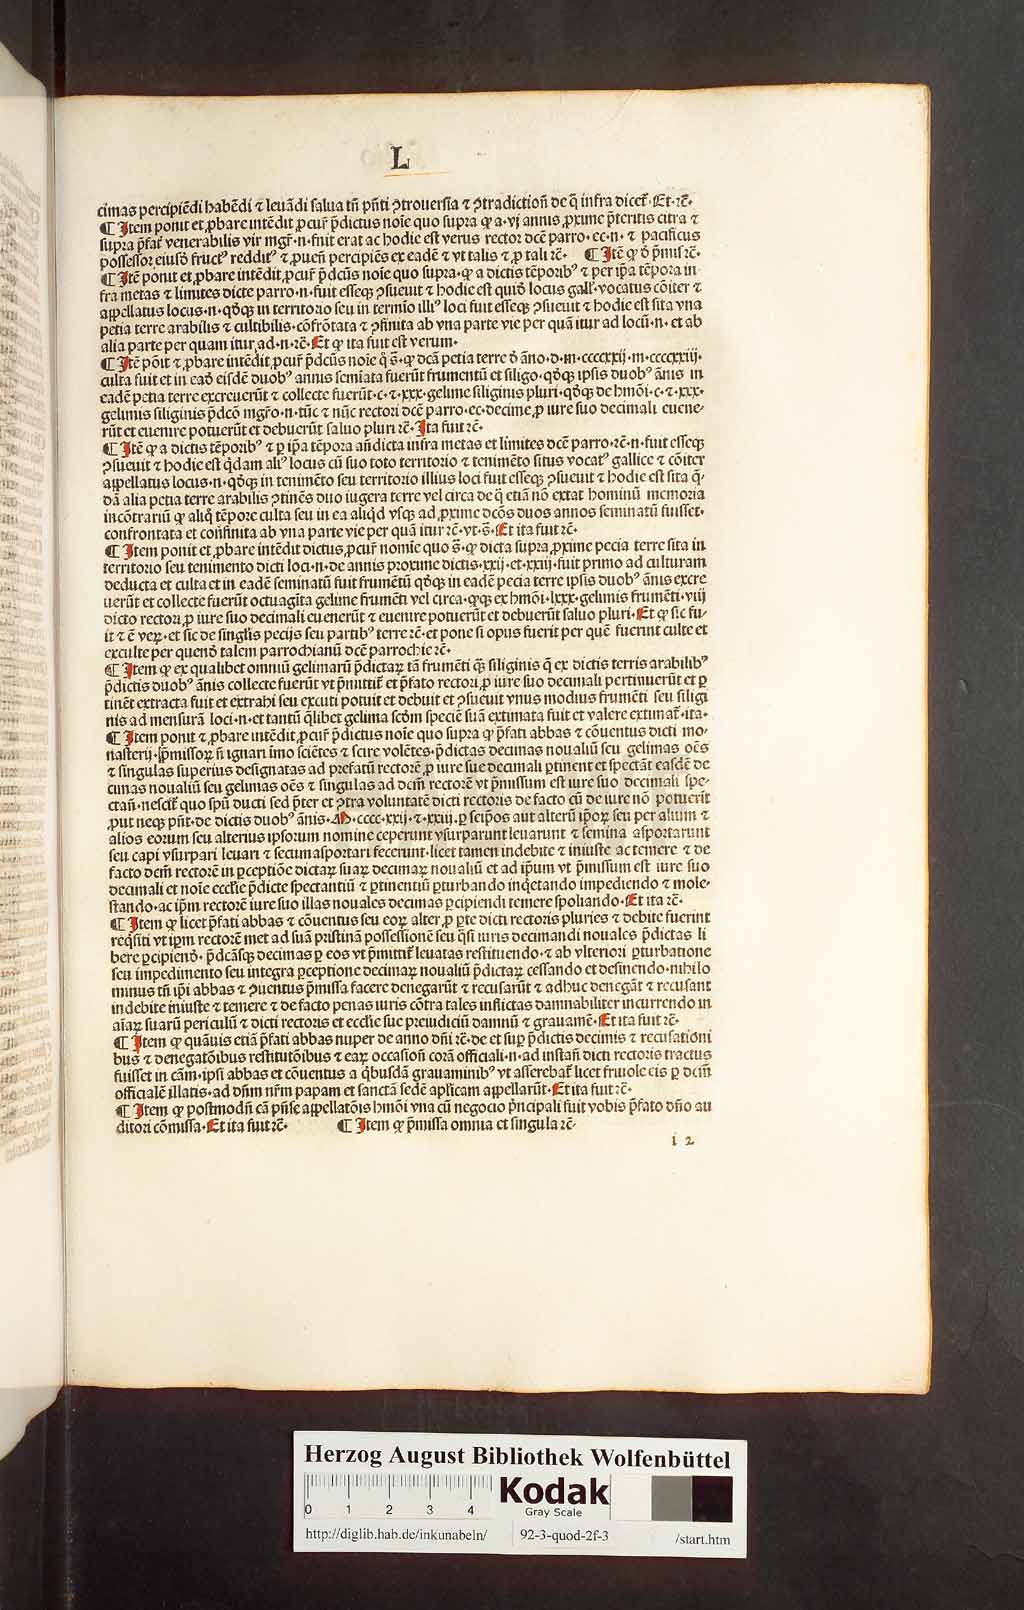 L
cimas percipiēdi habēdi ⁊ leuādi salua tn̄ pn̄ti ꝯtrouersia ⁊ ꝯtradictioñ de q̄ infra dicet᷑. Et. rē.
¶ Item ponit et ꝓbare intēdit ꝓcur̄ p̄dictus noīe quo supra ꝙ a. vj annis ꝓxime p̄teritis citra ⁊
supra p̄fat᷑ venerabilis vir mgr̄. n. fuit erat ac hodie est verus rector dcē parro. ec. n. ⁊ pacificus
possessor eiusđ fructꝰ redditꝰ ⁊ ꝓueñ percipiēs ex eadē ⁊ vt talis ⁊ ꝓ tali rē. ¶ Itē ꝙ đ p̄mis rē.
¶ Itē ponit et ꝓbare intēdit ꝓcur̄ p̄dcūs noīe quo supra. ꝙ a dictis tēporibꝰ ⁊ per ip̄a tēpora in
fra metas ⁊ limites dicte parro. n. fuit esseqꝫ ꝯsueuit ⁊ hodie est quiđ locus gall'. vocatus cōiter ⁊
appellatus locus. n. qđqꝫ in territorio seu in termīo illiꝰ loci fuit esseqꝫ ꝯsueuit ⁊ hodie est sita vna
petia terre arabilis ⁊ cultibilis. cōfrōtata ⁊ ꝯfinita ab vna parte vie per quā itur ad locū. n. et ab
alia parte per quam itur ad. n. rē. Et ꝙ ita fuit est verum.
¶ Itē pōit ⁊ ꝓbare intēdit ꝓcur̄ p̄dcūs noīe q̄ s̄. ꝙ dcā petia terre đ āno. d. m. ccccxxij. m. ccccxxiij.
culta fuit et in eađ eisdē duobꝰ annis semīata fuerūt frumentū et siligo. qđqꝫ ipsis duobꝰ ānis in
eadē petia terre excreuerūt ⁊ collecte fuerūt. c. ⁊. xxx. gelime siliginis pluri. qđqꝫ de hmōi. c. ⁊. xxx.
gelimis siliginis p̄dcō mgrō. n. tūc ⁊ nūc rectori dcē parro. ec. decime ꝓ iure suo decimali euene-
rūt et euenire potuerūt et debuerūt saluo pluri rē. Ita fuit rē.
¶ Itē ꝙ a dictis tēporibꝰ ⁊ ꝑ ip̄a tēpora añdicta infra metas et limites dcē parro. rē. n. fuit esseqꝫ
ꝯsueuit ⁊ hodie est q̄dam aliꝰ locus cū suo toto territorio ⁊ tenimēto situs vocatꝰ gallice ⁊ cōiter
appellatus locus. n. qđqꝫ in tenimēto seu territorio illius loci fuit esseqꝫ ꝯsueuit ⁊ hodie est sita q̄-
dā alia petia terre arabilis ꝯtinēs duo iugera terre vel circa de q̄ etiā nō extat hominū memoria
in cōtrariū ꝙ aliq̄ tēpore culta seu in ea aliqd vsqꝫ ad ꝓxime dcōs duos annos seminatū fuisset.
confrontata et confinita ab vna parte vie per quā itur rē. vt. s̄. Et ita fuit rē.
¶ Item ponit et ꝓbare intēdit dictus ꝓcur̄ nomīe quo s̄. ꝙ dicta supra ꝓxime pecia terre sita in
territorio seu tenimento dicti loci. n. de annis proxime dictis. xxij. et. xxiij. fuit primo ad culturam
deducta et culta et in eadē seminatū fuit frumētū qđqꝫ in eadē pecia terre ipsis duobꝰ ānis excre
uerūt et collecte fuerūt octuagīta gelime frumēti vel circa. ꝙqꝫ ex hmōi. lxxx. gelimis frumēti. viij
dicto rectori ꝓ iure suo decimali euenerūt ⁊ euenire potuerūt et debuerūt saluo pluri. Et ꝙ sic fu-
it ⁊ ē veꝝ. et sic de singlis pecijs seu partibꝰ terre rē. et pone si opus fuerit per quē fuerint culte et
exculte per quenđ talem parrochianū dcē parrochie rē.
¶ Item ꝙ ex qualibet omniū gelimarū p̄dictaꝝ tā frumēti q̄ꝫ siliginis q̄ ex dictis terris arabilibꝰ
p̄dictis duobꝰ ānis collecte fuerūt vt p̄mittit᷑ et p̄fato rectori ꝓ iure suo decimali pertinuerūt et ꝑ
tinēt extracta fuit et extrahi seu excuti potuit et debuit et ꝯsueuit vnus modius frumēti seu siligi
nis ad mensurā loci. n. et tantū q̄libet gelima scđm speciē suā extimata fuit et valere extimat᷑. ita.
¶ Item ponit ⁊ ꝓbare intēdit ꝓcur̄ p̄dictus noīe quo supra ꝙ p̄fati abbas ⁊ cōuentus dicti mo-
nasterij p̄missoꝝ ñ ignari imo sciētes ⁊ scire volētes p̄dictas decimas noualiū seu gelimas oēs
⁊ singulas superius designatas ad prefatū rectorē ꝓ iure sue decimali ꝑtinent et spectāt easdē de
cimas noualiū seu gelimas oēs ⁊ singulas ad dcm̄ rectorē vt p̄missum est iure suo decimali spe-
ctañ. nescit᷑ quo spū ducti sed p̄ter et ꝯtra voluntatē dicti rectoris de facto cū de iure nō potuerīt
ꝓut neqꝫ pn̄t. de dictis duobꝰ ānis. M. cccc. xxij. ⁊. xxij. ꝑ seip̄os aut alterū ip̄oꝝ seu per alium ⁊
alios eorum seu alterius ipsorum nomine ceperunt vsurparunt leuarunt ⁊ semina asportarunt
seu capi vsurpari leuari ⁊ secumasportari fecerunt. licet tamen indebite ⁊ iniuste ac temere ⁊ de
facto dcm̄ rectorē in ꝑceptiōe dictaꝝ suaꝝ decimaꝝ noualiū et ad ip̄um vt p̄missum est iure suo
decimali et noīe ecclīe p̄dicte spectantiū ⁊ ꝑtinentiū ꝑturbando inq̄etando impediendo ⁊ mole-
stando. ac ip̄m rectorē iure suo illas nouales decimas ꝑcipiendi temere spoliando. Et ita rē.
¶ Item ꝙ licet p̄fati abbas ⁊ cōuentus seu eoꝝ alter ꝓ ꝑte dicti rectoris pluries ⁊ debite fuerint
reqsiti vt ip̄m rectorē met ad suā pristinā possessionē seu q̄si iuris decimandi nouales p̄dictas li
bere ꝑcipienđ. p̄dcāsqꝫ decimas ꝑ eos vt p̄mittit᷑ leuatas restituendo. ⁊ ab vlteriori ꝑturbatione
seu impedimento seu integra ꝑceptione decimaꝝ noualiū p̄dictaꝝ cessando et desinendo. nihilo
minus tn̄ ip̄i abbas ⁊ ꝯuentus p̄missa facere denegarūt ⁊ recusarūt ⁊ adhuc denegāt ⁊ recusant
indebite iniuste ⁊ temere ⁊ de facto penas iuris cōtra tales inflictas damnabiliter incurrendo in
aīaꝝ suarū periculū ⁊ dicti rectoris et ecclīe sue preiudiciū damnū ⁊ grauamē. Et ita fuit rē.
¶ Item ꝙ quāuis etiā p̄fati abbas nuper de anno dn̄i rē. de et suꝑ p̄dictis decimis ⁊ recusationi
bus ⁊ denegatōibus restitutōibus ⁊ eaꝝ occasioñ corā officiali. n. ad instañ dicti rectoris tractus
fuisset in cām. ipsi abbas et cōuentus a q̄busdā grauaminibꝰ vt asserebat᷑ licet friuole eis ꝑ dcm̄
officialē illatis. ad dn̄m nr̄m papam et sanctā sedē aplicam appellarūt. Et ita fuit rē.
¶ Item ꝙ postmodn̄ cā pn̄se appellatōis hmōi vna cū negocio p̄ncipali fuit vobis p̄fato dn̄o au
ditori cōmissa. Et ita fuit rē. ¶ Item ꝙ p̄missa omnia et singula rē.
i 2
Herzog August Bibliothek Wolfenbüttel
0 1 2 3 4
Kodak
Gray Scale
http://diglib.hab.de/inkunabeln/ 92-3-quod-2f-3 /start.htm